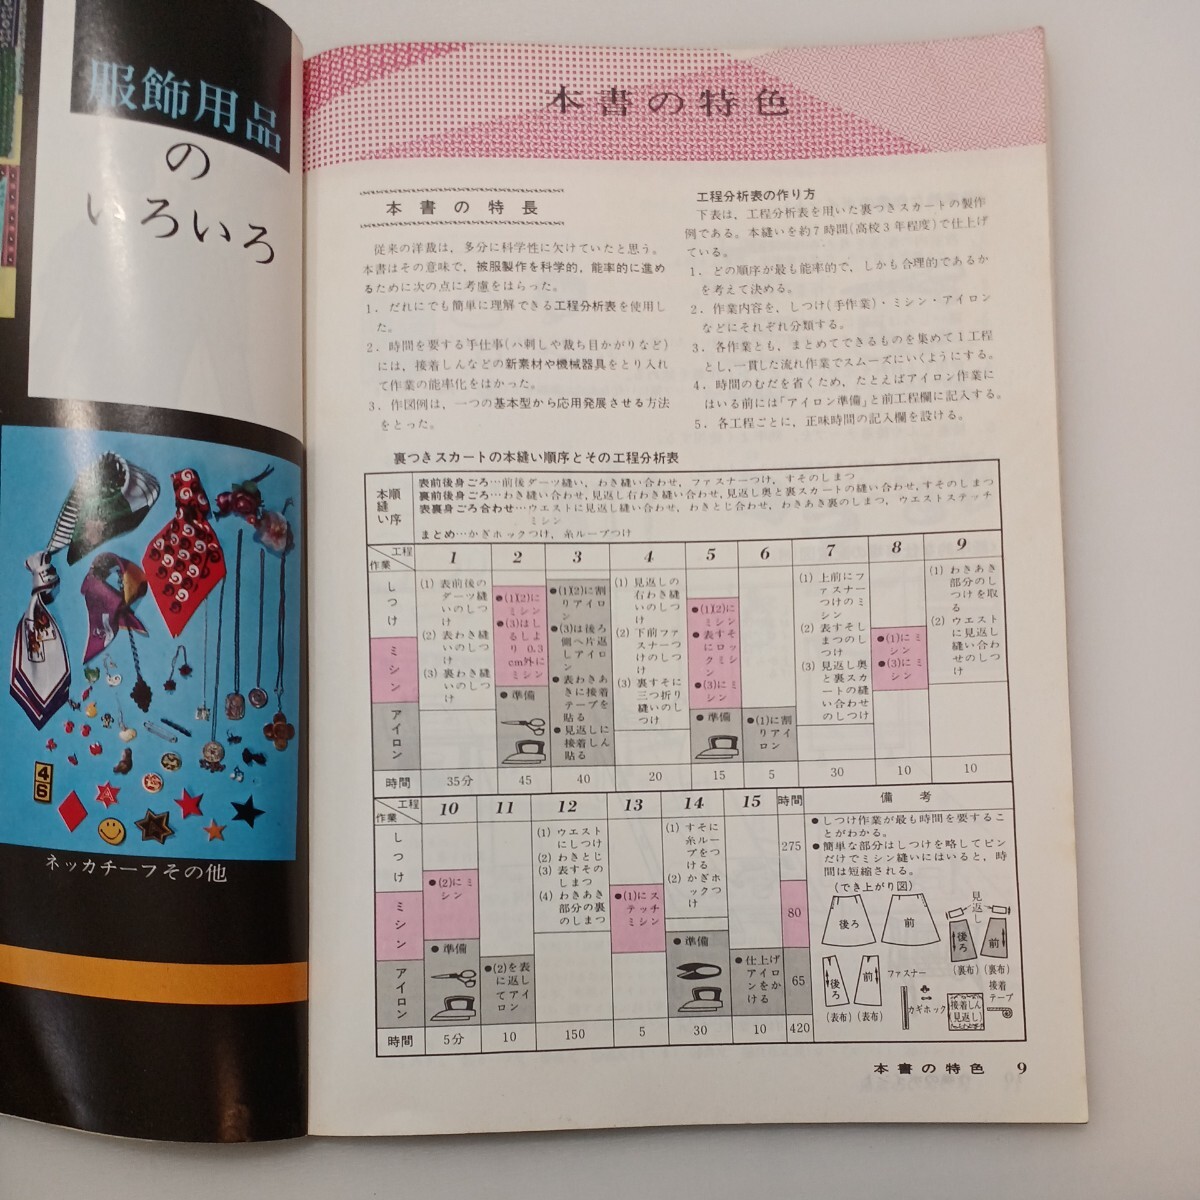 服飾用品
の
いろいろ
46
ネッカチーフその他
本書の特色
本書の特長
従来の洋裁は，多分に科学性に欠けていたと思う。
本書はその意味で，被服製作を科学的，能率的に進め
るために次の点に考慮をはらった。
1．だれにでも簡単に理解できる工程分析表を使用し
た。
2．時間を要する手仕事(ハ刺しや裁ち目かがりなど)
には，接着しんなどの新素材や機械器具をとり入れ
て作業の能率化をはかった。
3．作図例は，一つの基本型から応用発展させる方法
をとった。
工程分析表の作り方
下表は，工程分析表を用いた裏つきスカートの製作
例である。本縫いを約7時間(高校3年程度)で仕上げ
ている。
1．どの順序が最も能率的で，しかも合理的であるか
を考えて決める。
2．作業内容を，しつけ(手作業)・ミシン・アイロン
などにそれぞれ分類する。
3．各作業とも，まとめてできるものを集めて1工程
とし，一貫した流れ作業でスムーズにいくようにする。
4．時間のむだを省くため，たとえばアイロン作業に
はいる前には「アイロン準備」と前工程欄に記入する。
5．各工程ごとに，正味時間の記入欄を設ける。
裏つきスカートの本縫い順序とその工程分析表
本縫い順序
表前後身ごろ…前後ダーツ縫い，わき縫い合わせ，ファスナーつけ，すそのしまつ
裏前後身ごろ…わき縫い合わせ，見返し右わき縫い合わせ，見返し奥と裏スカートの縫い合わせ，すそのしまつ
表裏身ごろ合わせ…ウエストに見返し縫い合わせ，わきとじ合わせ，わきあき裏のしまつ，ウエストステッチ
ミシン
まとめ…かぎホックつけ，糸ループつけ
工程
作業
1 2 3 4 5 6 7 8 9
しつけ
ミシン
アイロン
(1) 表前後の
ダーツ縫
いのしつ
け
(2) 表わき縫
いのしつ
け
(3) 裏わき縫
いのしつ
け
●(1)(2)に
ミシン
●(3)はし
るしよ
り0.3
cm外に
ミシン
●準備
●(1)(2)に割
りアイロ
ン
●(3)は後ろ
側へ片返
しアイロ
ン
●表わきあ
きに接着
テープを
貼る
●見返しに
接着しん
貼る
(1) 見返しの
右わき縫
いのしつ
け
(2) 下前ファ
スナーつ
けのしつ
け
(3) 裏すそに
三つ折り
縫いのし
つけ
●(1)(2)に
ミシン
●表すそ
にロッ
クミシ
ン
●(3)にミ
シン
●準備
●(1)に割
りアイ
ロン
(1) 上前にフ
ァスナー
つけのミ
シン
(2) 表すそし
まつのし
つけ
(3) 見返し奥
と裏スカ
ートの縫
い合わせ
のしつけ
●(1)にミ
シン
●(3)にミ
シン
(1) わきあき
部分のし
つけを取
る
(2) ウエスト
に見返し
縫い合わ
せのしつ
け
時間 35分 45 40 20 15 5 30 10 10
工程
作業
10 11 12 13 14 15 時間 備考
しつけ
ミシン
アイロン
●(2)にミ
シン
●準備
●(2)を表
に返し
てアイ
ロン
(1) ウエスト
にしつけ
(2) わきとじ
(3) 表すその
しまつ
(4) わきあき
部分の裏
のしまつ
●(1)にス
テッチ
ミシン
(1) すそに
糸ルー
プをつ
ける
(2) かぎホ
ックつ
け
●準備
●仕上げ
アイロ
ンをか
ける
275
80
65
●しつけ作業が最も時間を要するこ
とがわかる。
●簡単な部分はしつけを略してピン
だけでミシン縫いにはいると，時
間は短縮される。
(でき上がり図)
後ろ
前
見返し
後ろ
前
(裏布)
(裏布)
後ろ
前
(表布)
(表布)
ファスナー
カギホック
接着しん
(見返し)
接着
テープ
時間 5分 10 150 5 30 10 420
本書の特色 9